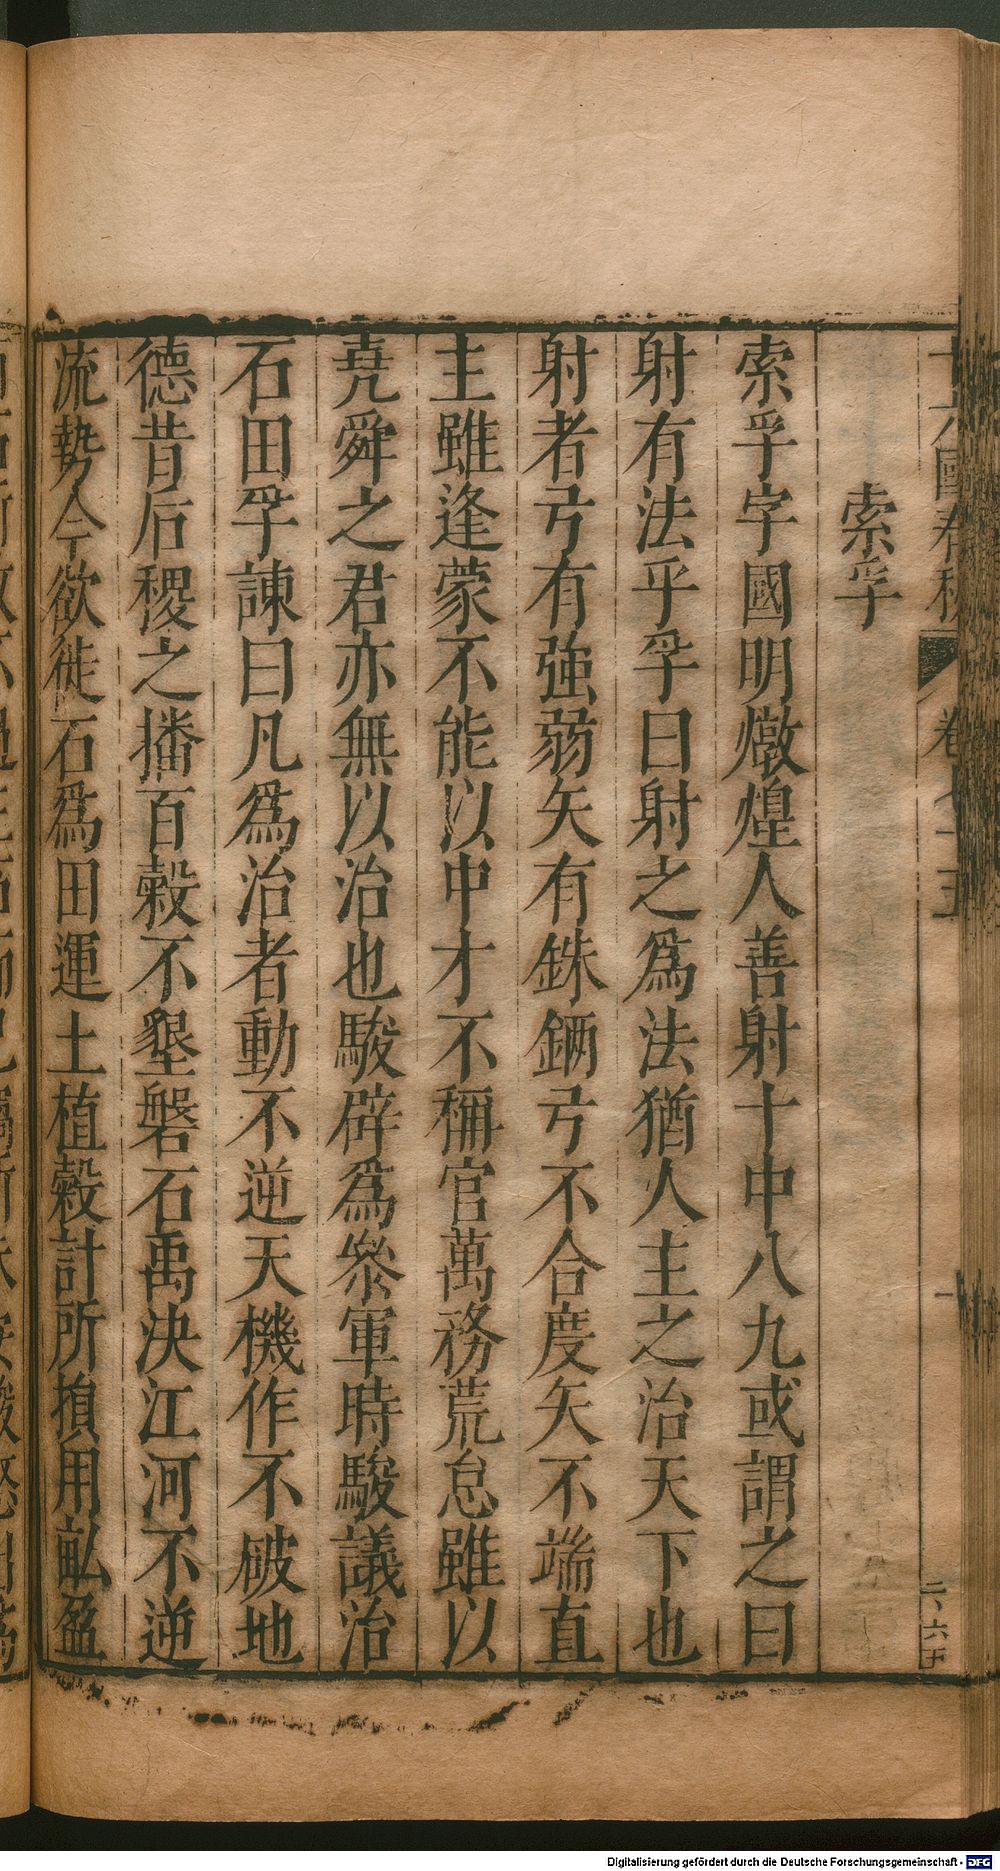 十六國春秋 卷七十五 一
二、六十
索孚
索孚字國明燉煌人善射十中八九或謂之曰
射有法乎孚曰射之爲法猶人主之治天下也
射者弓有強弱矢有銖鎘弓不合度矢不端直
主雖逢蒙不能以中才不稱官萬務荒怠雖以
堯舜之君亦無以治也駿辟爲叅軍時駿議治
石田孚諫曰凡爲治者動不逆天機作不破地
德昔后稷之播百榖不墾磐石禹決江河不逆
流勢今欲徙石爲田運土植榖計所損用畝盈
Digitalisierung gefördert durch die Deutsche Forschungsgemeinschaft - DFG